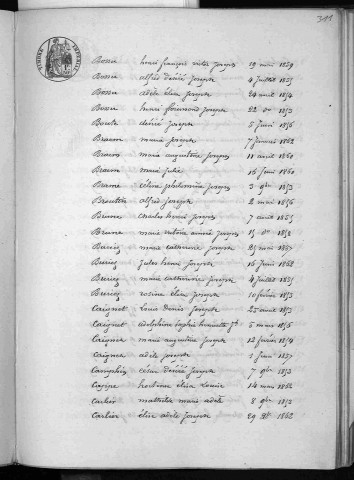 311
TIMBRE IMPÉRIAL
Bossu henri françois victor joseph 19 mai 1859
Bossu alfred désiré joseph 4 juillet 1857
Bossu adèle élise joseph 24 avril 1854
Bossu henri floumond joseph 22 1853
Boute désiré joseph 8 juin 1856
Braem marie joseph 7 janvier 1862
Braem marie augustine joseph 11 avril 1860
Braem marie julie 16 juin 1860
Brame élise philomène joseph 3 9bre 1853
Brouttin alfred joseph 2 mai 1856
Brune charles henri joseph 7 avril 1855
Brune marie victoire aimée joseph 15 1852
Buriez marie catherine joseph 25 mai 1857
Buriez jules henri joseph 16 juin 1862
Buriez marie catherine joseph 4 juillet 1851
Buriez rosine élise joseph 10 février 1853
Caignet louis denis joseph 25 avril 1853
Caignet adolphine sophie henriette jh 6 mars 1856
Caignet marie augustine joseph 12 février 1854
Caignet adèle joseph 1 juin 1857
Camphin césar désiré joseph 7 9bre 1853
hortense élisa louise 14 mai 1852
Carlier mathilde marie adèle 8 9bre 1853
Carlier élise adèle joseph 29 1862